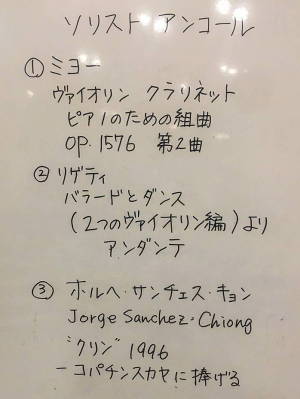 ソリスト アンコール
① ミヨー
ヴァイオリン クラリネット
ピアノのための組曲
OP. 1576 第2曲
② リゲティ
バラードとダンス
(2つのヴァイオリン編)より
アンダンテ
③ ホルヘ・サンチェス・キョン
Jorge Sanchez-Chiong
"クリン" 1996
－コパチンスカヤに捧げる